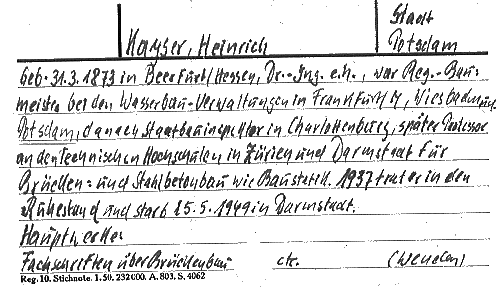 Stadt
Kayser, Heinrich Potsdam
Geb. 31.3.1873 in Beerfurt/Hessen, Dr.-Ing. e.h., war Reg.-Bau-
meister bei den Wasserbau-Verwaltungen in Frankfurt M, Wiesbaden u.
Potsdam, danach Staatbauinspektor in Charlottenburg, später Professor
an den Technischen Hochschulen in Zürich und Darmstadt für
Brücken= und Stahlbetonbau wie Baustatik. 1937 trat er in den
Ruhestand und starb 25.5.1949 in Darmstadt.
Hauptwerke:
Fachschriften über Brückenbau etc.
Reg. 10. Stichnote. 1. 50. 232000. A. 803. S. 4062